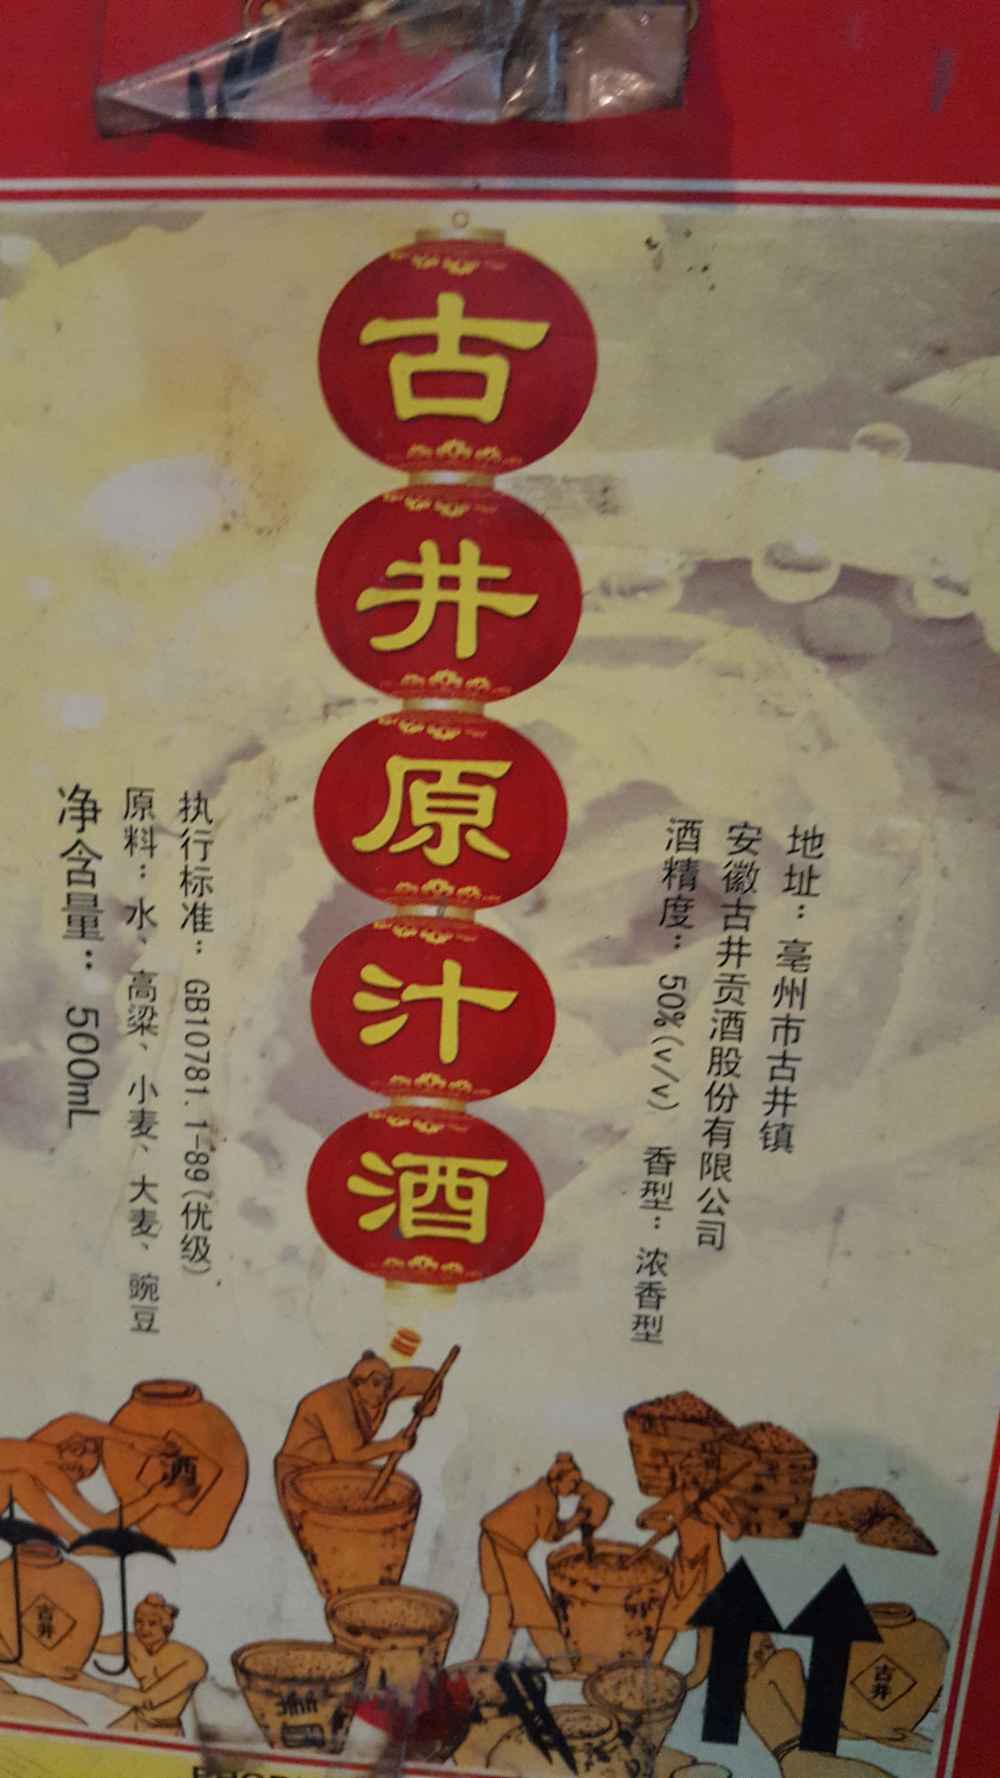 古井原汁酒
地址：亳州市古井镇
安徽古井贡酒股份有限公司
酒精度：50%(v/v) 香型：浓香型
执行标准：GB10781.1-89(优级)
原料：水、高粱、小麦、大麦、豌豆
净含量：500mL
酒
古井
古井